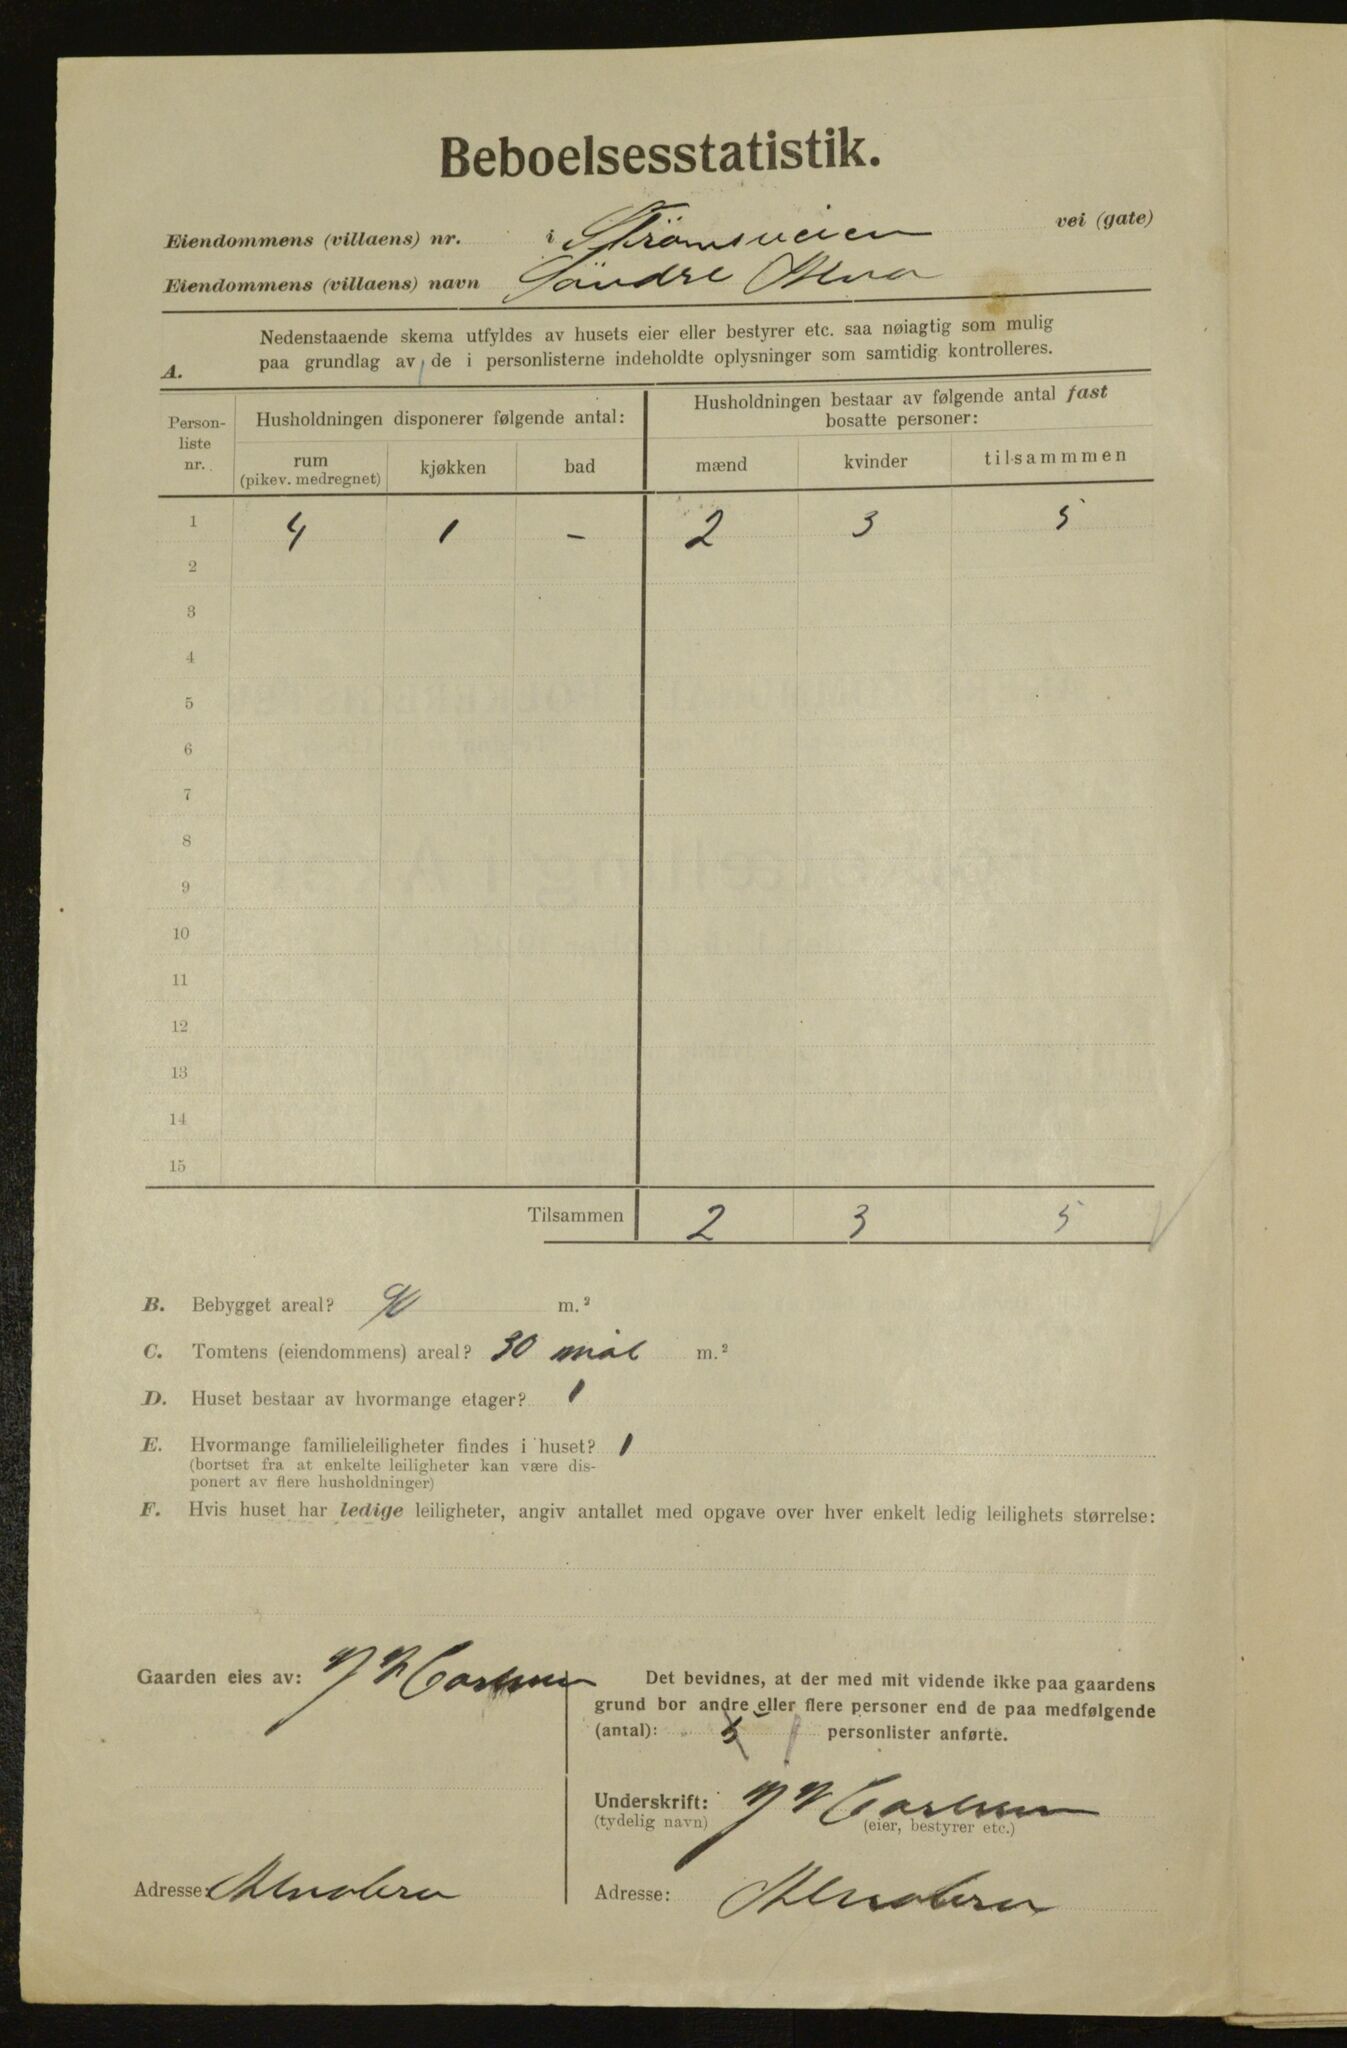 Beboelsesstatistik.
Eiendommens (villaens) nr. i Strömsveien vei (gate)
Eiendommens (villaens) navn Söndre Alna
Nedenstaaende skema utfyldes av husets eier eller bestyrer etc. saa nøiagtig som mulig
paa grundlag av de i personlisterne indeholdte oplysninger som samtidig kontrolleres.
A.
Person-liste nr. Husholdningen disponerer følgende antal: Husholdningen bestaar av følgende antal fast bosatte personer:
rum (pikev. medregnet) kjøkken bad mænd kvinder tilsammmen
1 4 1 - 2 3 5
2
3
4
5
6
7
8
9
10
11
12
13
14
15
Tilsammen 2 3 5
B. Bebygget areal? 90 m.²
C. Tomtens (eiendommens) areal? 30 mål m.²
D. Huset bestaar av hvormange etager? 1
E. Hvormange familieleiligheter findes i huset? 1
(bortset fra at enkelte leiligheter kan være dis-
ponert av flere husholdninger)
F. Hvis huset har ledige leiligheter, angiv antallet med opgave over hver enkelt ledig leilighets størrelse:
Gaarden eies av: Carlsen
Det bevidnes, at der med mit vidende ikke paa gaardens
grund bor andre eller flere personer end de paa medfølgende
(antal): 5 1 personlister anførte.
Underskrift: Carlsen
(tydelig navn) (eier, bestyrer etc.)
Adresse: Alnabru
Adresse: Alnabru